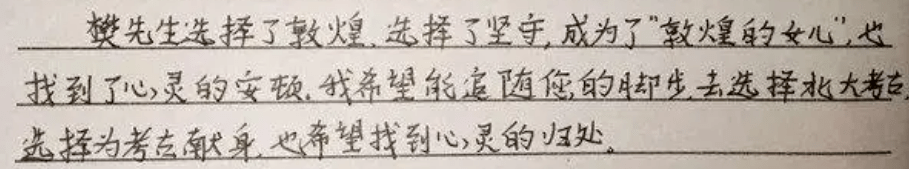 樊先生选择了敦煌,选择了坚守,成为了“敦煌的女儿”,也
找到了心灵的安顿。我希望能追随您的脚步,去选择北大考古,
选择为考古献身,也希望找到心灵的归处。